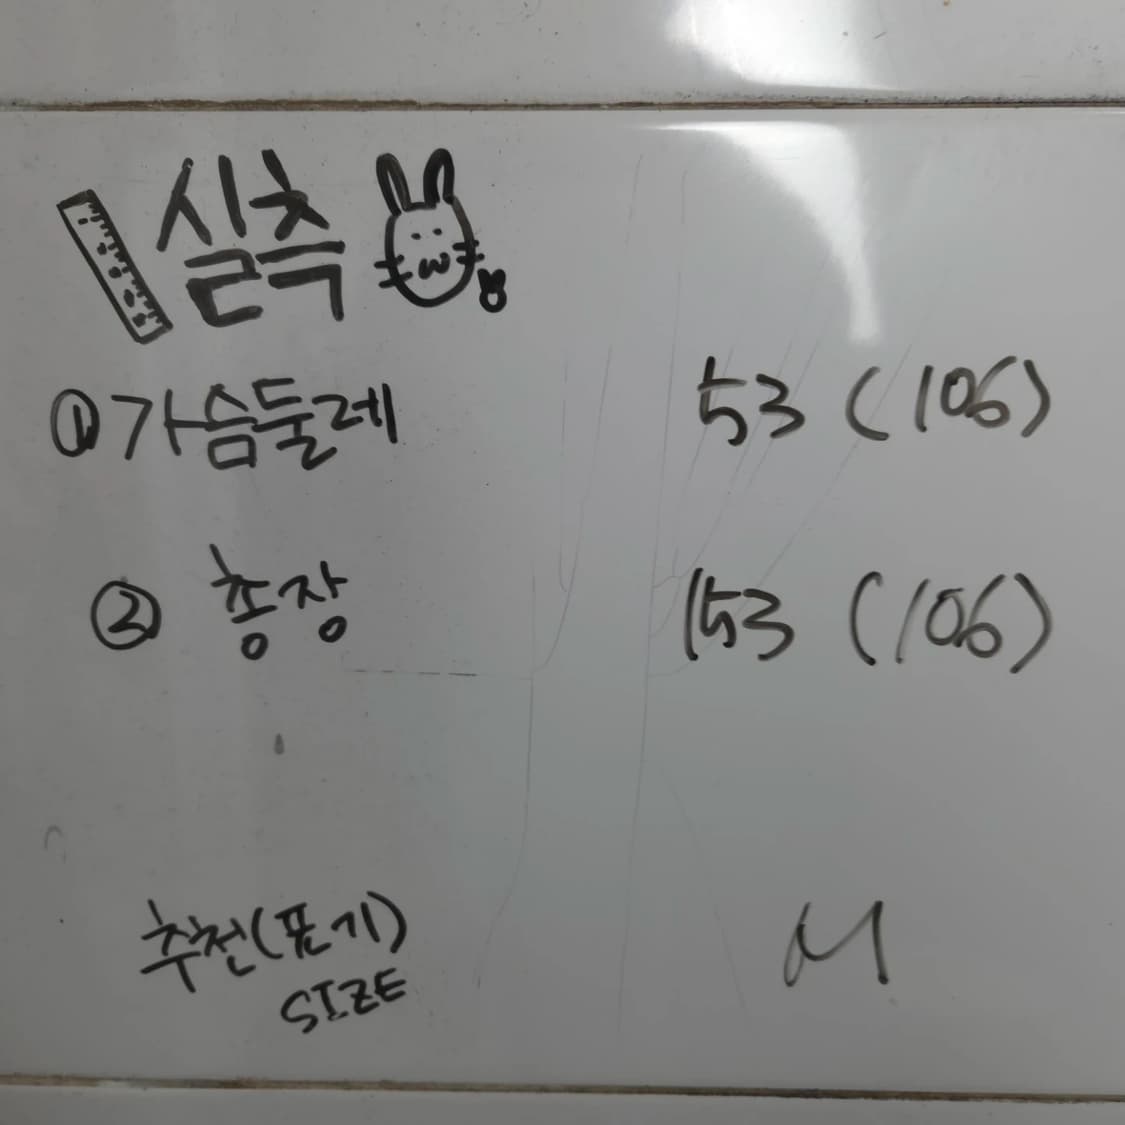 실측
①가슴둘레 53 (106)
② 총장 153 (106)
추천(표기) M
SIZE